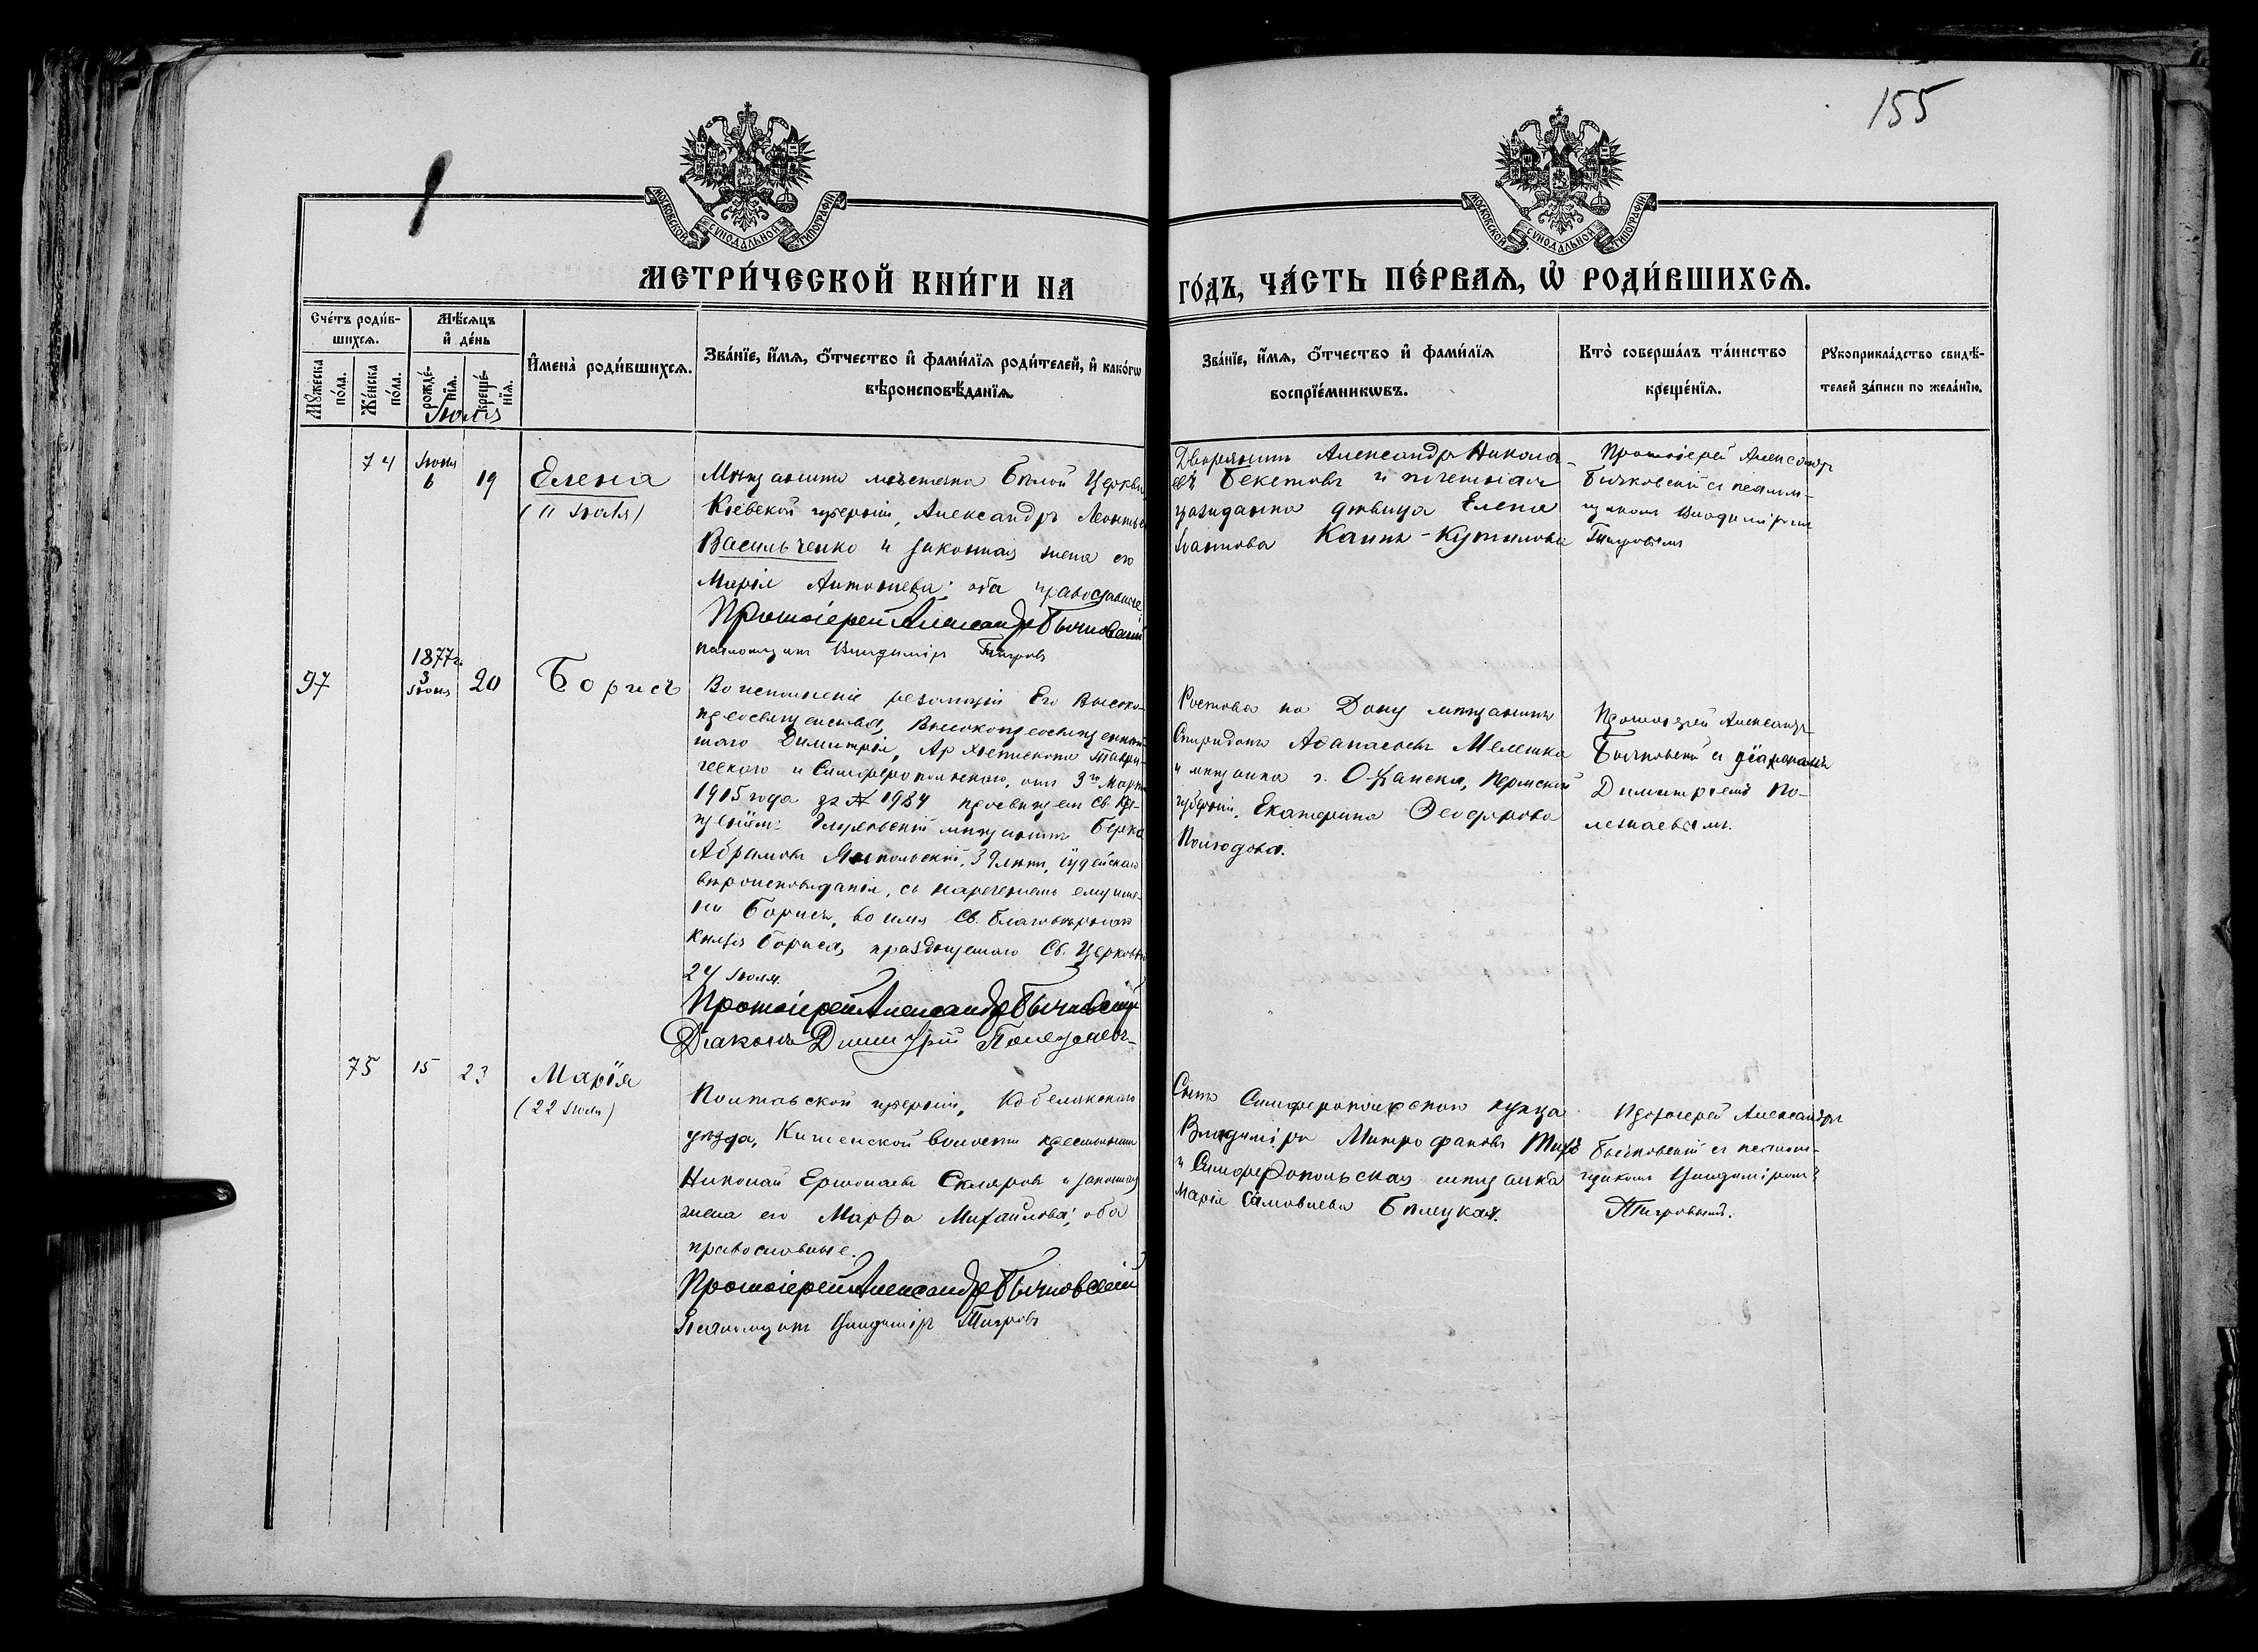 155
МОСКОВСКОЙ СѴНОДАЛЬНОЙ ТИПОГРАФІИ
МОСКОВСКОЙ СѴНОДАЛЬНОЙ ТИПОГРАФІИ
МЕТРИ́ЧЕСКОЙ КНИ́ГИ НА
ГО́ДЪ, ЧА́СТЬ ПЕ́РВАѦ, Ѡ҆ РОДИ́ВШИХСѦ.
Сче́тъ роди́в-
шихсѧ.
Мѣ́сѧцъ
и҆ де́нь
Мꙋ́жеска
по́ла.
Же́нска
по́ла.
рожде́-
нїѧ.
креще́-
нїѧ.
И҆мена̀ роди́вшихсѧ.
Зва́нїе, и҆́мѧ, ѻ҆́тчество и҆ фами́лїѧ роди́телей, и҆ како́гѡ
вѣроисповѣ́данїѧ.
Зва́нїе, и҆́мѧ, ѻ҆́тчество и҆ фами́лїѧ
воспрїе́мникѡвъ.
Кто̀ соверша́лъ та́инство
креще́нїѧ.
Рꙋкоприкла́дство свидѣ́-
телей за́писи по жела́нїю.
Іюль
74
Іюня
6
19
Елена
(11 Іюля)
Мѣщанинъ мѣстечка Бѣлой Церкви
Кіевской губерніи, Александръ Леонтьевъ
Васильченко и законная жена его
Марія Антоніева; оба православные.
Протоіерей Александръ Бычковскій
Псаломщикъ Владиміръ Тигровъ
Дворянинъ Александръ Никола-
евъ Бекетовъ и
гражданка дѣвица Елена
Каппъ-Кутилова
Протоіерей Александръ
Бычковскій съ псалом-
щикомъ Владиміромъ
Тигровымъ
97
1877 г.
3
Іюня
20
Борисъ
Во исполненіе резолюціи Его Высоко-
преосвященства, Высокопреосвященнѣй-
шаго Димитрія, Архіепископа Таври-
ческаго и Симферопольскаго, отъ 3го Марта
1915 года за № 1984 просвѣщенъ Св. Кре-
щеніемъ мѣщанинъ Берко
Абрамовъ Ямпольскій, 39 лѣтъ, іудейскаго
вѣроисповѣданія, съ нареченіемъ ему име-
ни Борисъ, во имя Св. Благовѣрнаго
Князя Бориса, празднуемаго Св. Церковью
24 Іюля.
Протоіерей Александръ Бычковскій
Діаконъ Димитрій Полежаевъ
Ростова на Дону мѣщанинъ
Спиридонъ Афанасьевъ Мелешка
и мѣщанка г. Оханска, Пермской
губерніи, Екатерина Ѳеодорова
Полюдова.
Протоіерей Александръ
Бычковскій съ діакономъ
Димитріемъ По-
лежаевымъ.
75
15
23
Марія
(22 Іюля)
Полтавской губерніи, Кобелякскаго
уѣзда, Кишенской волости крестьянинъ
Николай Ермолаевъ Скляровъ и законная
жена его Марѳа Михайлова; оба
православные.
Протоіерей Александръ Бычковскій
Псаломщикъ Владиміръ Тигровъ
Сынъ Симферопольскаго купца
Владиміръ Митрофановъ
и Симферопольская мѣщанка
Марія Бѣлецкая.
Протоіерей Александръ
Бычковскій съ псалом-
щикомъ Владиміромъ
Тигровымъ.